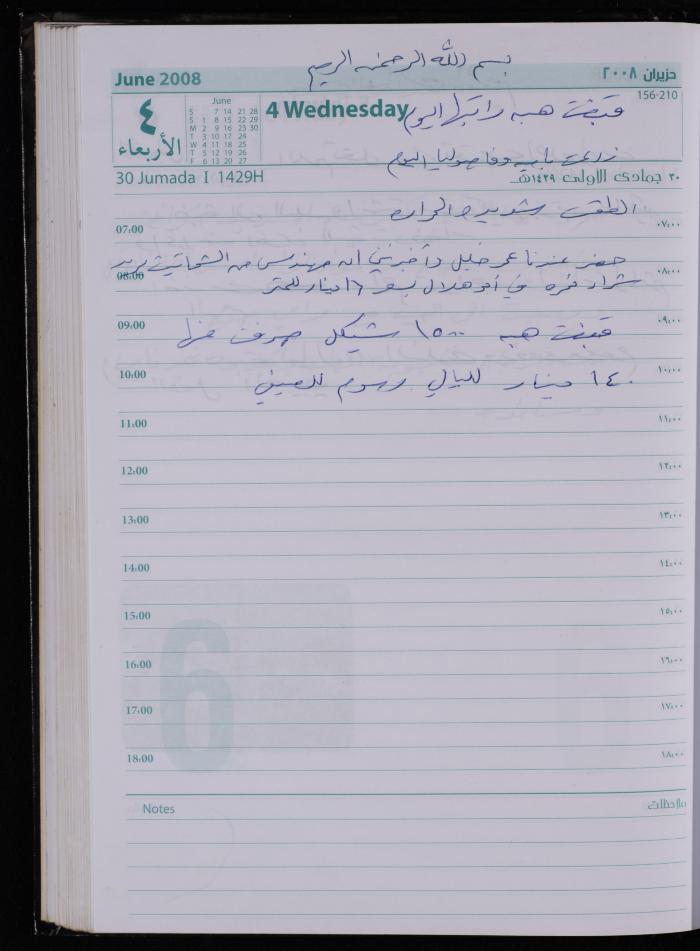 بسم الله الرحمن الرحيم
June 2008
حزيران ٢٠٠٨
156-210
٤
الأربعاء
June
S 7 14 21 28
S 1 8 15 22 29
M 2 9 16 23 30
T 3 10 17 24
W 4 11 18 25
T 5 12 19 26
F 6 13 20 27
4 Wednesday
قبضت هبه راتبها اليوم
زرعت باميه وفاصوليا اليوم
30 Jumada I 1429H
٣٠ جمادى الاولى ١٤٢٩هـ
الطقس شديد الحراره
07:00 ٠٧:٠٠
حضر عندنا عمر خليل وأخبرني انه مهندس من يريد
08:00 ٠٨:٠٠
شراء نمره في أبو هلال بسعر ١٦ دينار للمتر
09:00 ٠٩:٠٠
قبضت هبه ١٥٠٠ شيكل صرف منها
10:00 ١٠:٠٠
١٤٠ دينار لليالي رسوم للصيفي
11:00 ١١:٠٠
12:00 ١٢:٠٠
13:00 ١٣:٠٠
14:00 ١٤:٠٠
15:00 ١٥:٠٠
16:00 ١٦:٠٠
17:00 ١٧:٠٠
18:00 ١٨:٠٠
6
Notes ملاحظات